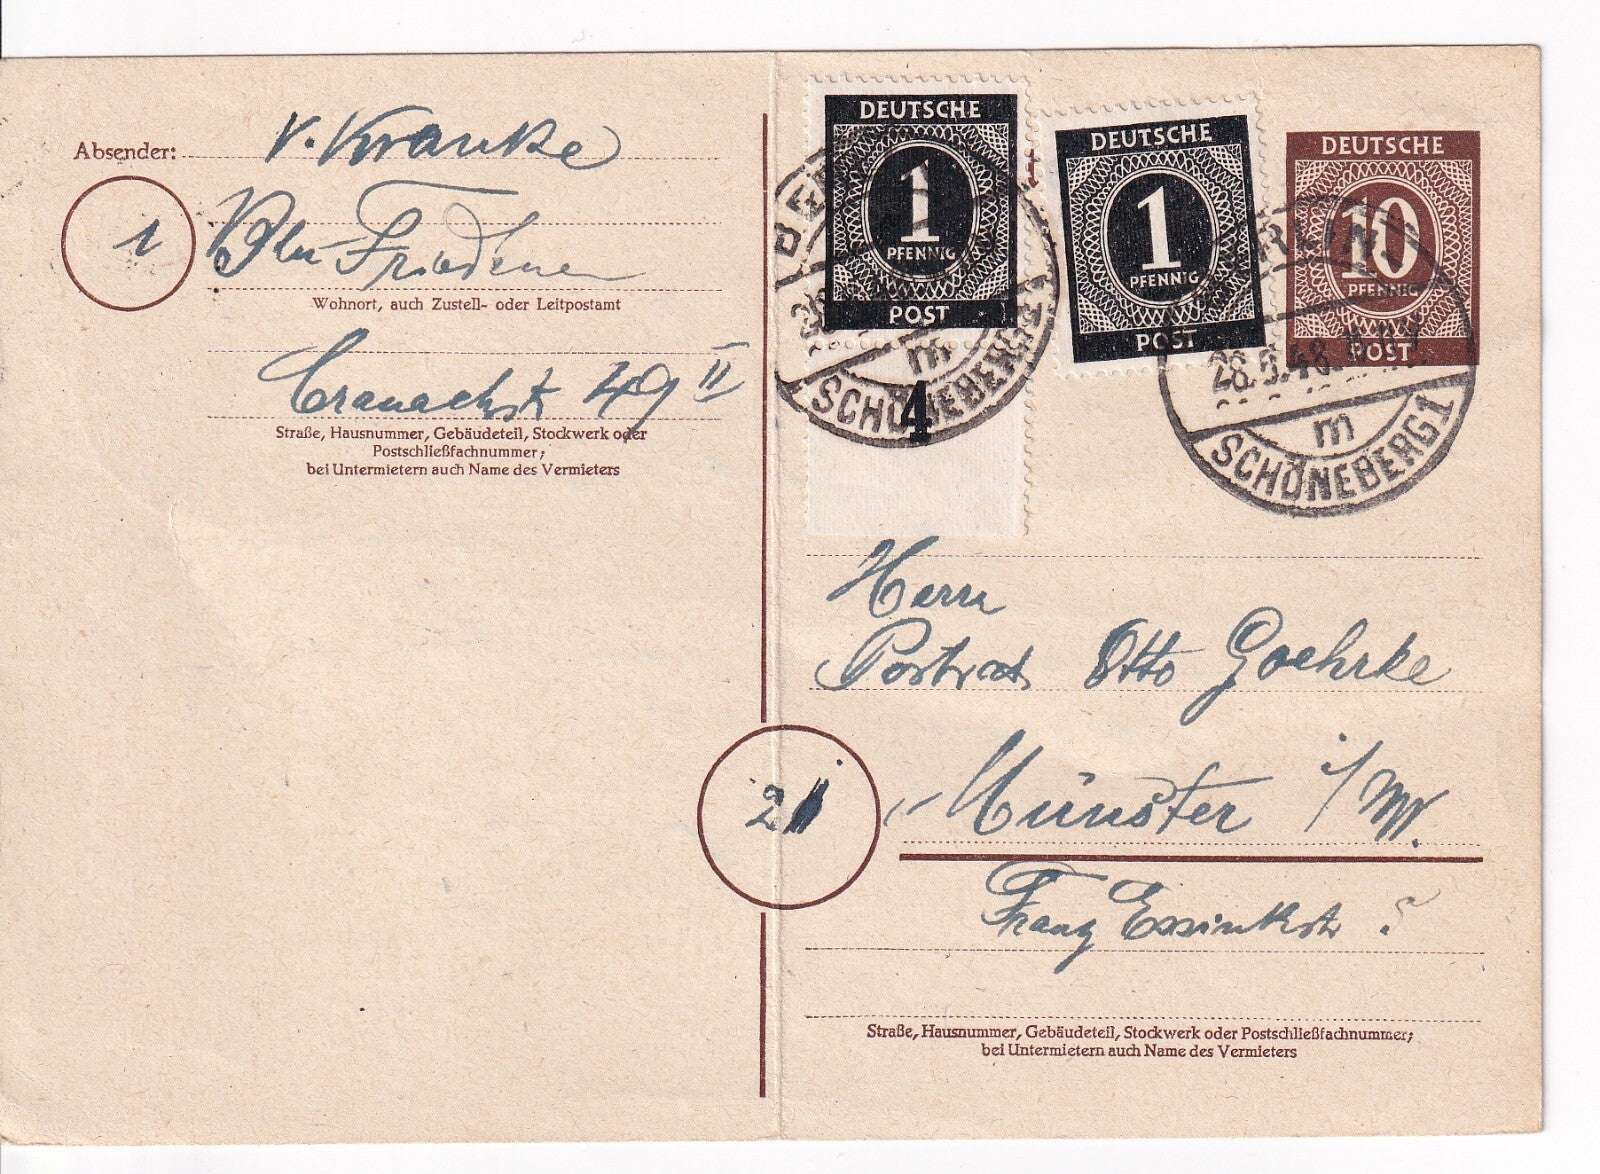 Absender: V. Krauke
1
Bln Friedenau
Wohnort, auch Zustell- oder Leitpostamt
Cranachstr 49 II
Straße, Hausnummer, Gebäudeteil, Stockwerk oder
Postschließfachnummer;
bei Untermietern auch Name des Vermieters
DEUTSCHE
1
PFENNIG
POST
4
DEUTSCHE
1
PFENNIG
POST
DEUTSCHE
10
PFENNIG
POST
m
SCHÖNEBERG 1
BERLIN
28.5.48
m
SCHÖNEBERG 1
Herrn
Postrat Otto Goehrke
21
Münster i/W.
Franz Essinkstr ?
Straße, Hausnummer, Gebäudeteil, Stockwerk oder Postschließfachnummer;
bei Untermietern auch Name des Vermieters